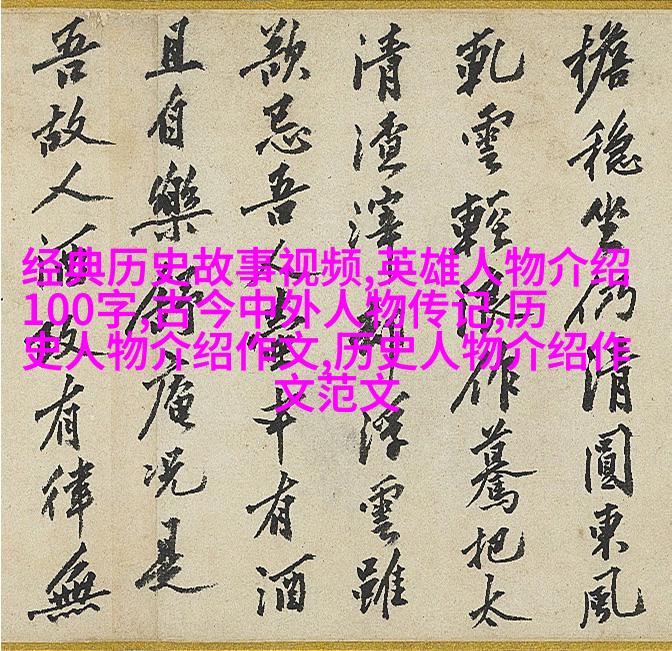 经典历史故事视频,英雄人物介绍
100字,古今中外人物传记,历
史人物介绍作文,历史人物介绍作
文范文
檐稳坐仍清圓東風
雲輕浪作驀把太
清渣滓浮雲雖
忌吾人中有酒
且自樂舒庵況是
吾故人酒政有律無